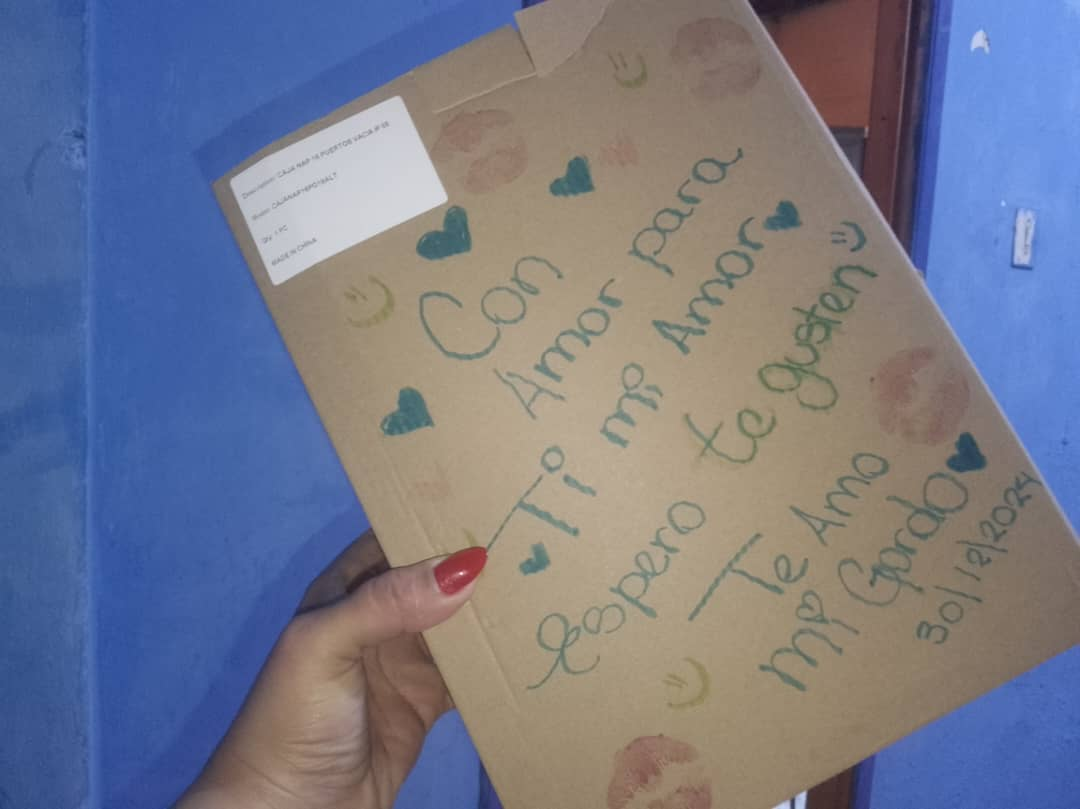 Description: CAJA NAP 16 PUERTOS VACIA IP 68
Model: CAJANAP16PG16ALT
Qty: 1 PC
MADE IN CHINA
Con
Amor para
Ti mi Amor
espero te gusten
Te Amo
mi Gordo
30/12/2024